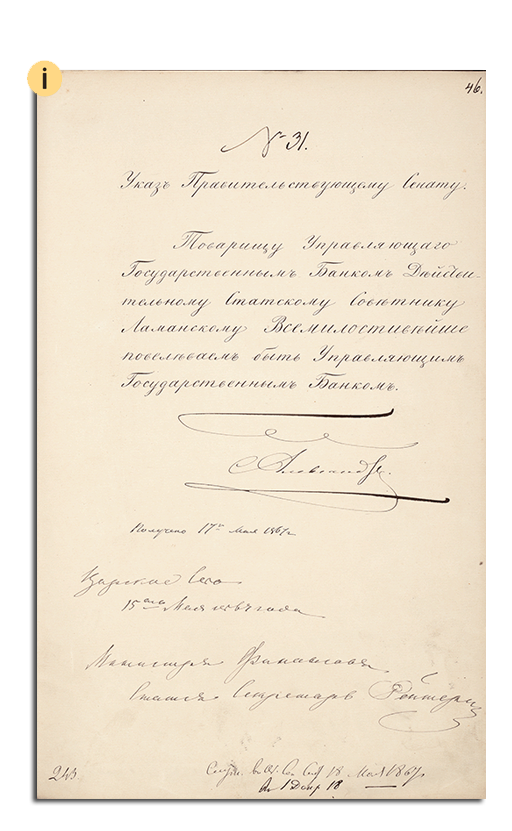 i
46.
№ 31.
Указъ Правительствующему Сенату.
Товарищу Управляющаго
Государственнымъ Банкомъ Дѣйстви-
тельному Статскому Совѣтнику
Ламанскому Всемилостивѣйше
повелѣваемъ быть Управляющимъ
Государственнымъ Банкомъ.
Александръ.
Получено 17го Мая 1867г
Царское Село
15го Мая 1867 года
Министръ Финансовъ
Статсъ Секретарь Рейтернъ
243
18 Мая 1867